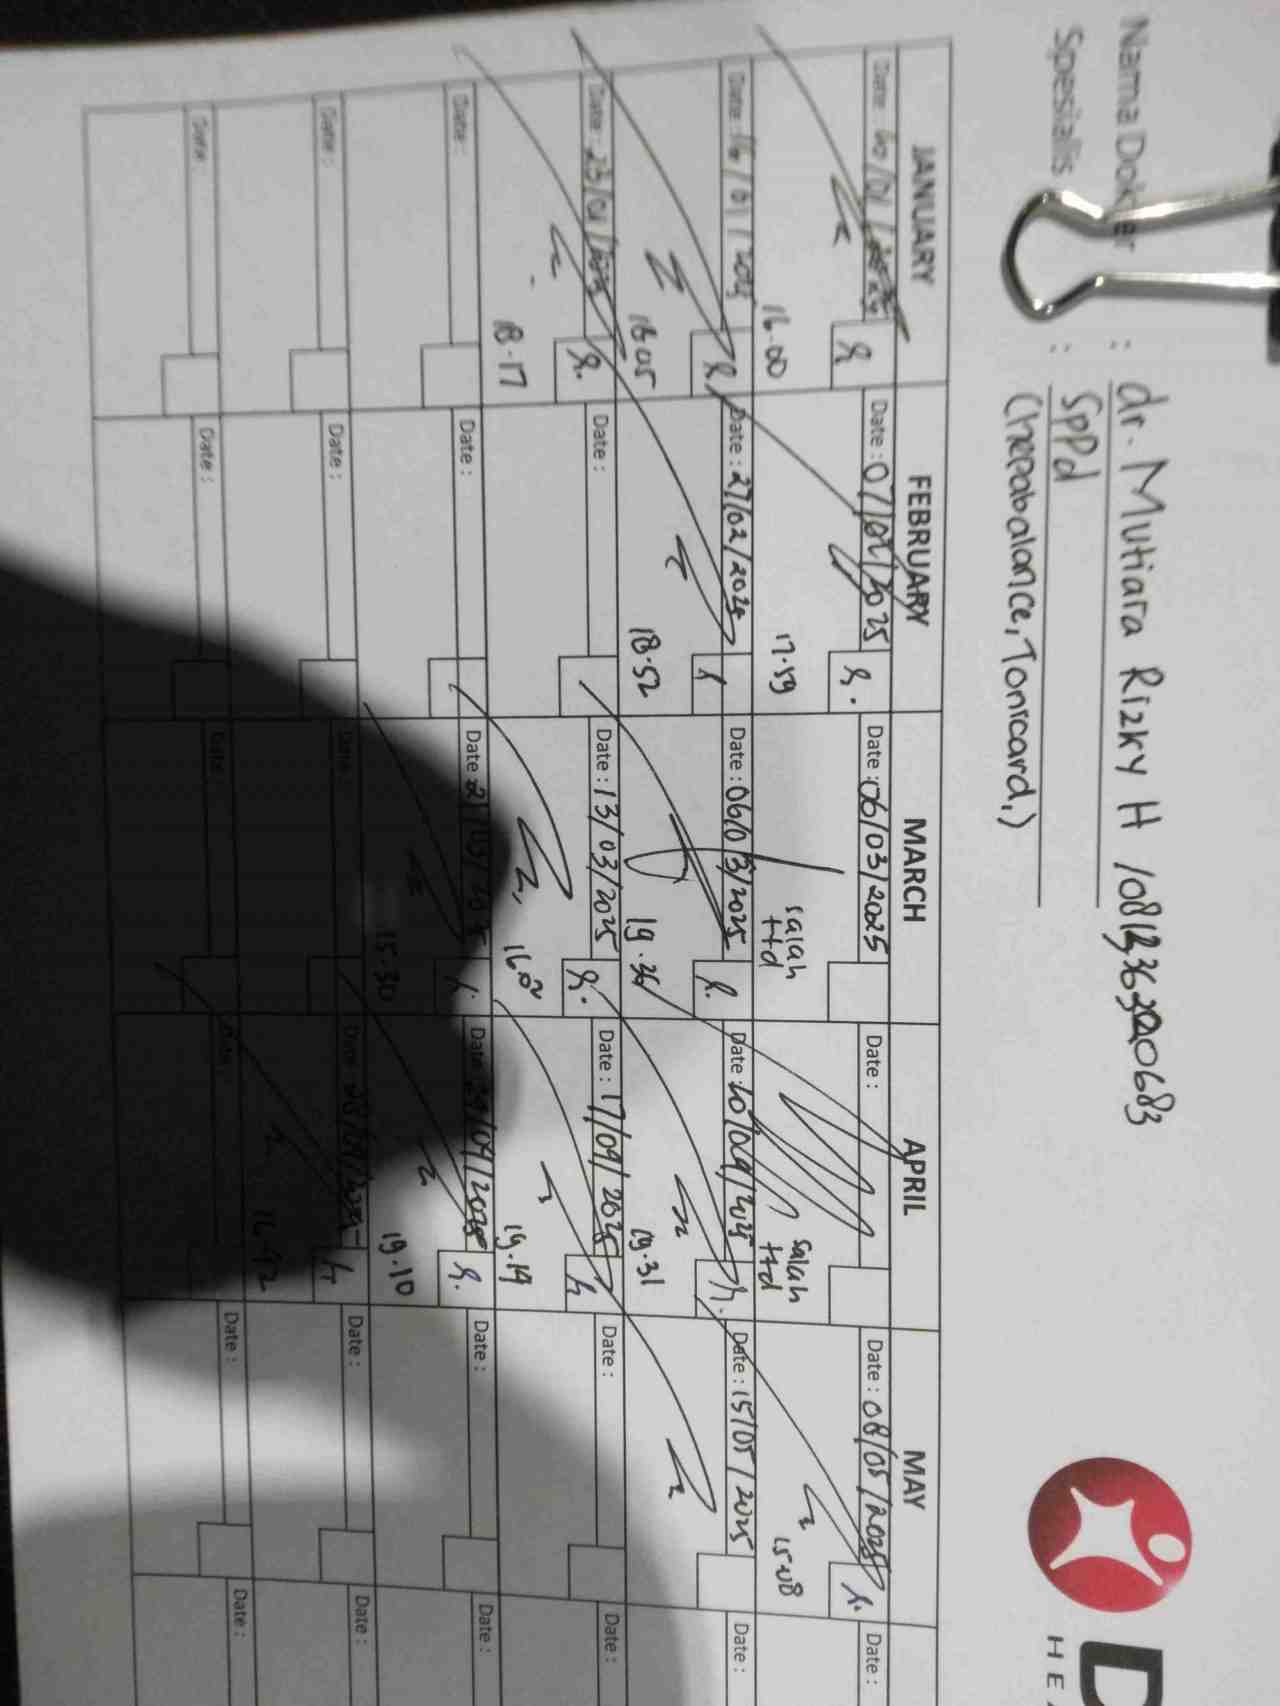 Nama Dokter : dr. Mutiara Rizky H
Spesialis : SpPd
(Chepabalance, Tonicard,)
D
HEA
JANUARY FEBRUARY MARCH APRIL MAY
Date: Date: 07/02/2025 Date: 06/03/2025 Date: Date: 08/05/2025 Date:
16.00 17.59 salah ttd salah ttd 15.08
Date: 16/01/2025 Date: 27/02/2025 Date: 06/03/2025 Date: 10/04/2025 Date: 15/05/2025 Date:
16.05 18.52 19.36 19.31
Date: 23/01/2025 Date: Date: 13/03/2025 Date: 17/04/2025 Date: Date:
18.17 16.02 19.19
Date: Date: Date: Date: Date: Date:
15.30 19.10
Date: Date: Date: Date: Date: Date:
16.42
Date: Date: Date: Date: Date: Date: